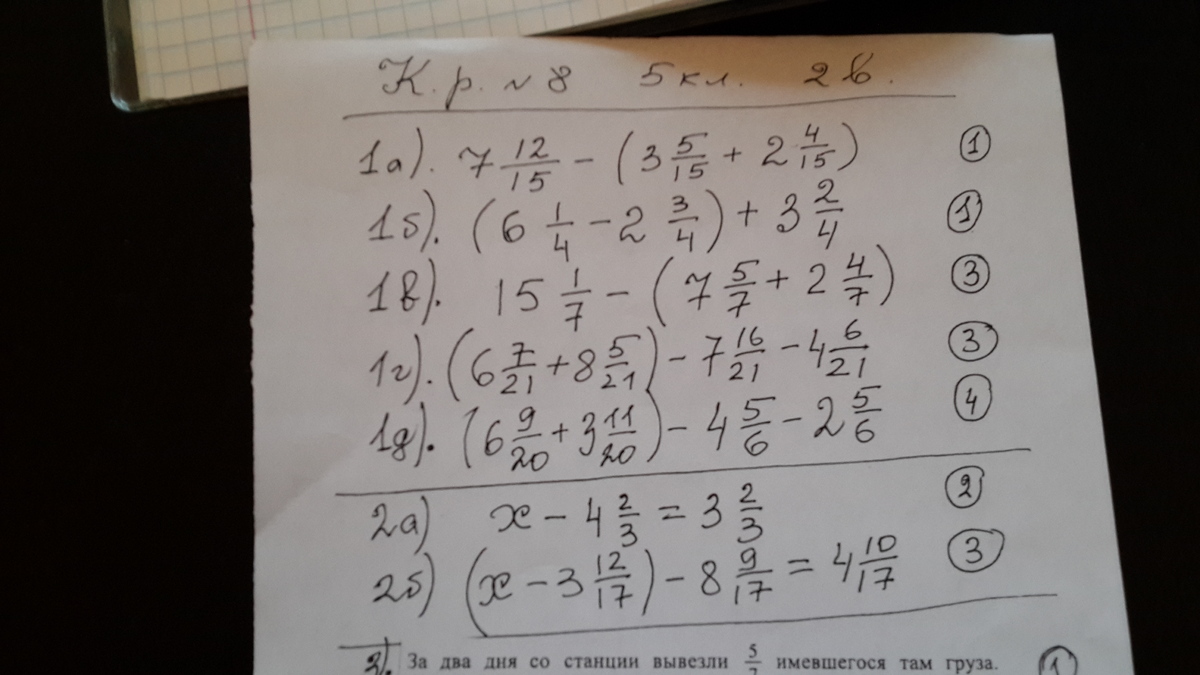 К.р. №8 5кл. 2в.
1а). 7 12/15 − (3 5/15 + 2 4/15) ①
1б). (6 1/4 − 2 3/4) + 3 2/4 ①
1в). 15 1/7 − (7 5/7 + 2 4/7) ③
1г). (6 7/21 + 8 5/21) − 7 16/21 − 4 6/21 ③
1д). (6 9/20 + 3 11/20) − 4 5/6 − 2 5/6 ④
2а) x − 4 2/3 = 3 2/3 ②
2б) (x − 3 12/17) − 8 9/17 = 4 10/17 ③
3). За два дня со станции вывезли имевшегося там груза. ①